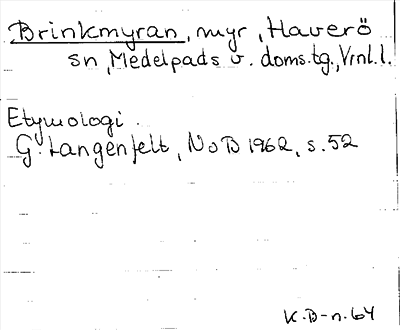 Brinkmyran, myr, Haverö
sn, Medelpads v. doms.tg., Vnl.l.
Etymologi.
G. Langenfelt, NoB 1962, s. 52
K.B-n. 64